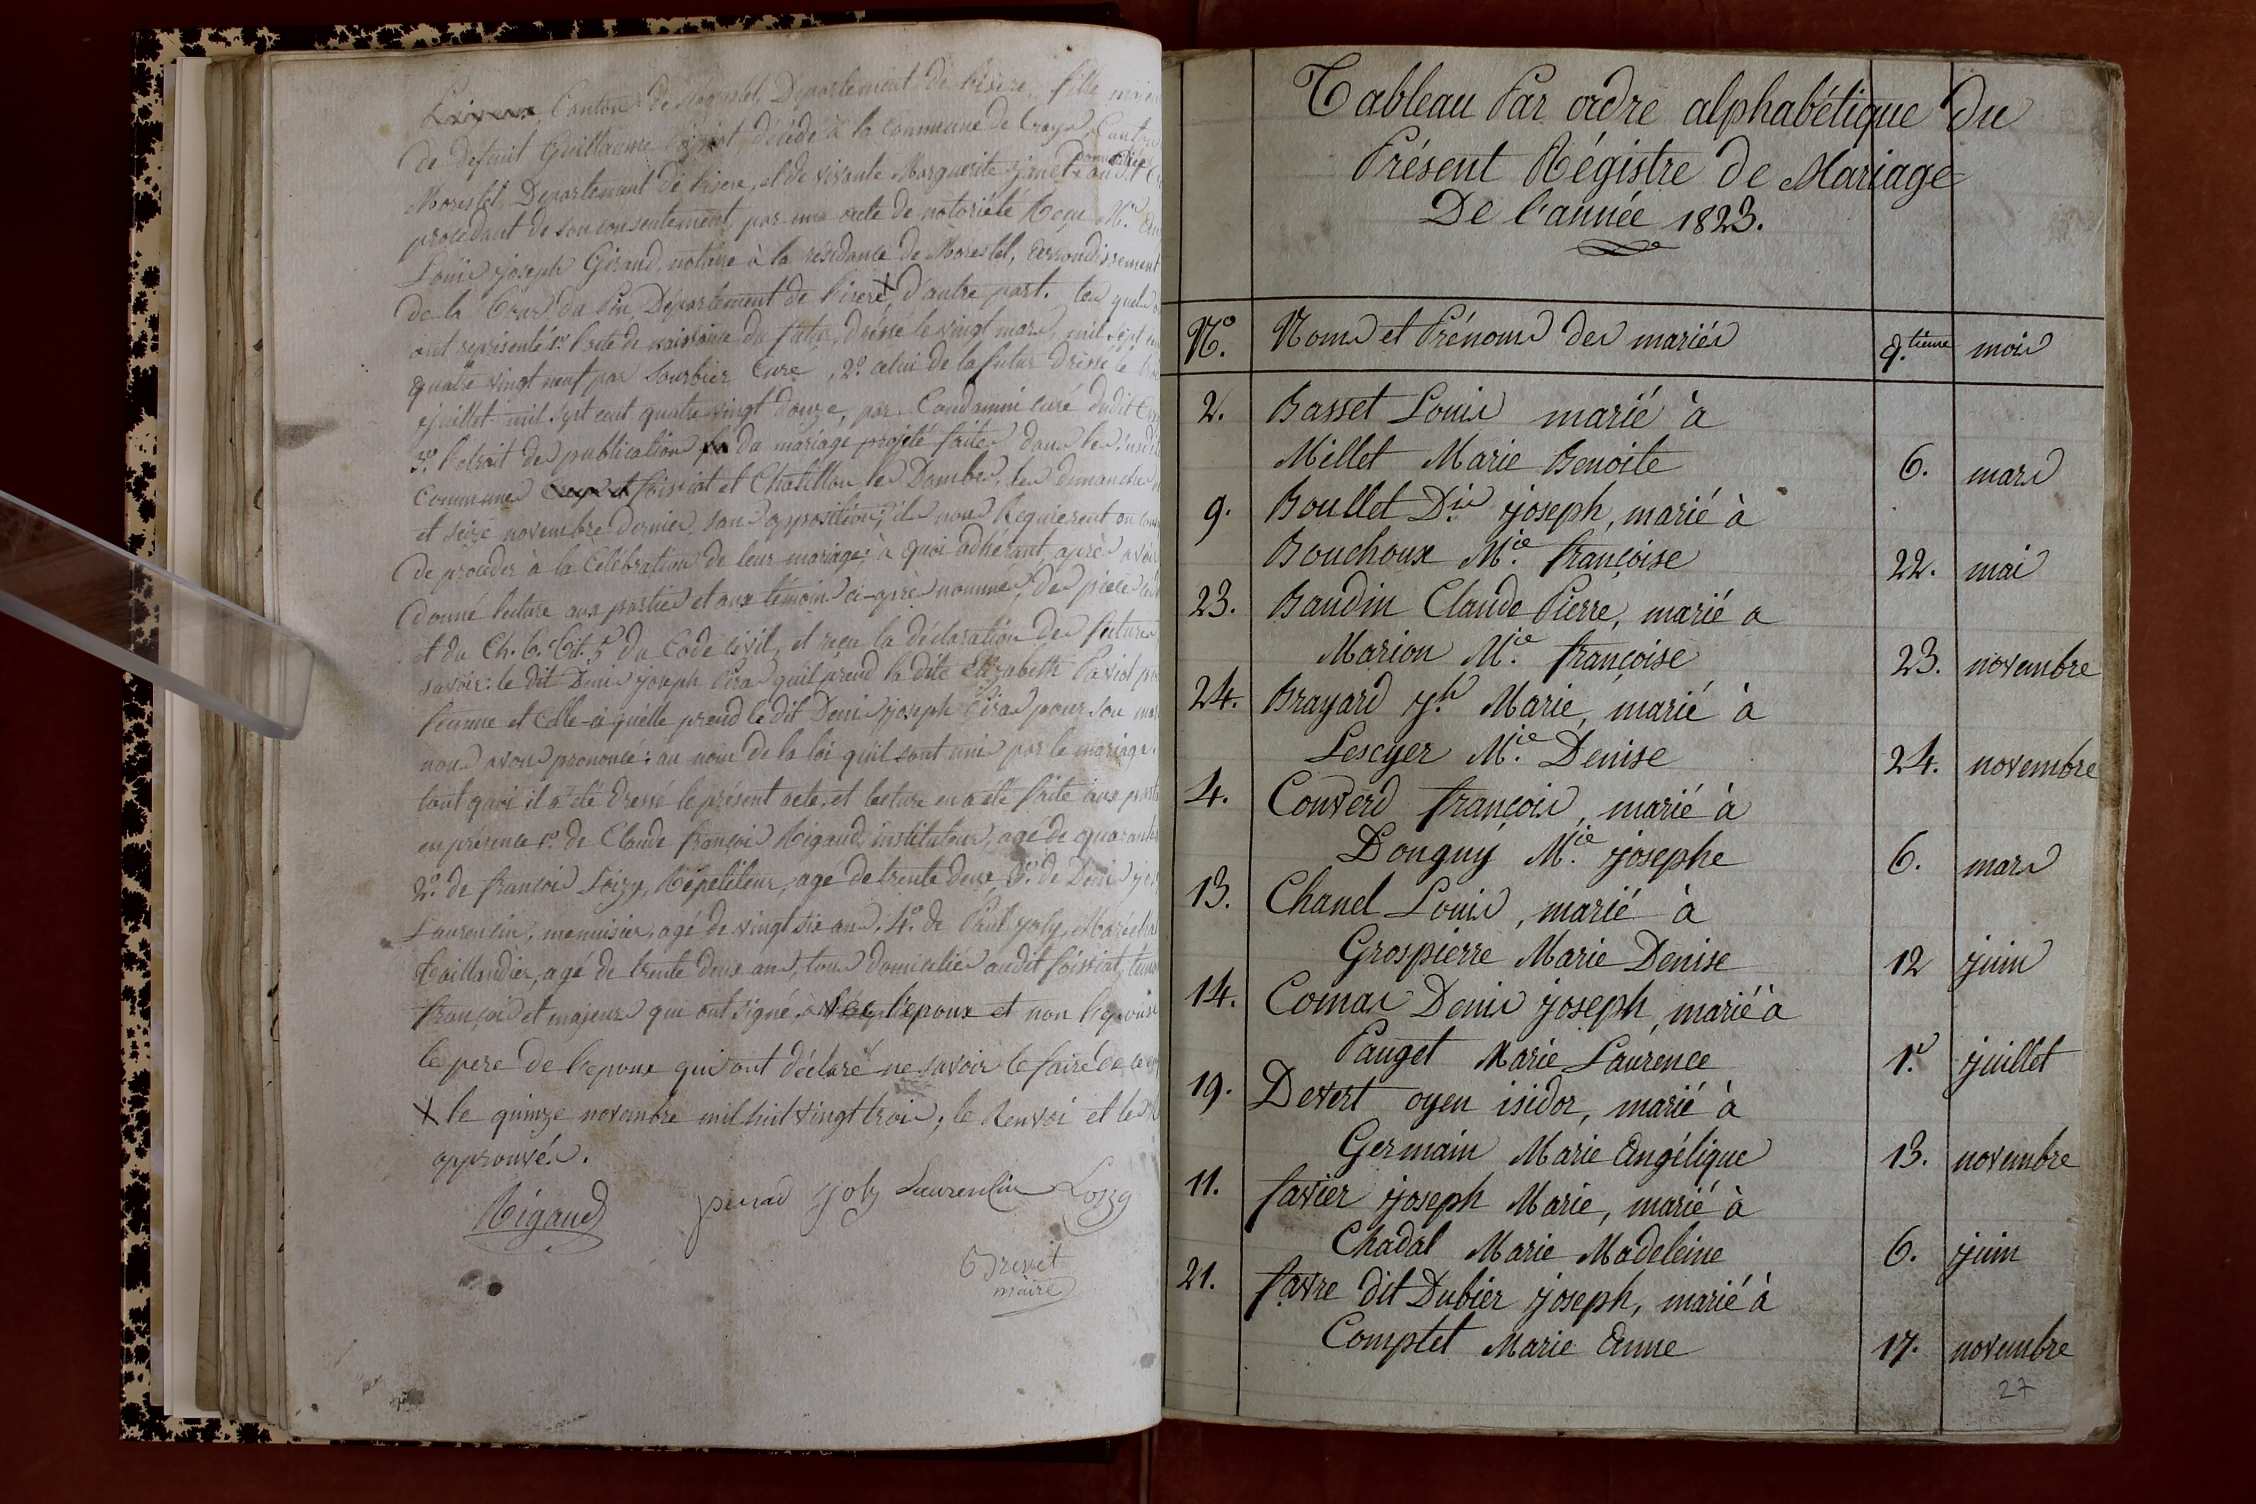 Canton de Morestel, Département de l'isère, fille
de defunt Guillaume décédé à la commune de Creys, Canton
Morestel, Departement de l'isere, et de vivante Marguerite domiciliée au dit
procedant de son consentement, par une acte de notoriété Reçu Mre.
Louis joseph Giraud, notaire à la résidance de Morestel, arrondissement
de la Tour du Pin, Département de l'isere X, d'autre part. les quels
ont représenté 1o. l'acte de naissance du futur, dréssé le vingt mars, mil sept
quatre vingt neuf par Sourbier Curé, 2o. celui de la futur drésse le
juillet mil sept cent quatre vingt douze, par Condamin curé dudit
3o. l'extrait des publications du mariage projeté faites dans les susdites
communes foissiat et Chatillon les Dombes, les dimanches
et seize novembre dernier, sans opposition; ils nous Requierent
de procéder à la célébration de leur mariage; à quoi adhérant, après avoir
donné lecture aux parties et aux témoins ci-après nommés, des pieces
et du Ch. 6. Tit. 5 du Code civil, et reçu la déclaration des futurs
savoir: le dit Denis joseph qu'il prend la dite Elizabeth
femme et Celle-ci qu'elle prend le dit Denis joseph pour son
nous avons prononcé: au nom de la loi qu'ils sont unis par le mariage.
tout quoi il a été dressé le présent acte, et lecture en a été faite aux
en présence 1o. de Claude françois Rigaud, instituteur, agé de quarante
2o. de françois Loizy, Répetiteur, agé de trente deux, 3o. de Denis
Laurencin, menuisier, agé de vingt six ans, 4o. de Paul joly, Maréchal
Taillandier, agé de trente deux ans, tous domiciliés audit foissiat, témoins
français et majeurs qui ont signé l'epoux et non l'epouse
le pere de l'epoux qui ont déclaré ne savoir le faire de ce
X le quinze novembre mil huit vingt trois; le Renvoi et les
approuvés.
Rigaud joly Laurencin Loizy
Brevet
maire
Tableau Par ordre alphabétique du
Présent Régistre de Mariage
De l'année 1823.
No. Noms et Prénoms des mariés q.tième mois
2. Basset Louis marié à
Millet Marie Benoite 6. mars
9. Boullet D.is joseph, marié à
Bouchoux M.ie françoise 22. mai
23. Baudin Claude Pierre, marié a
Marion M.ie françoise 23. novembre
24. Brayard j.h Marie, marié à
Lescyer M.ie Denise 24. novembre
4. Converd françois, marié à
Donguy M.ie josephe 6. mars
13. Chanel Louis, marié à
Grospierre Marie Denise 12 juin
14. Comas Denis joseph, marié à
Pauget Marie Laurence 1.r juillet
19. Devert oyen isidor, marié à
Germain Marie Angélique 13. novembre
11. favier joseph Marie, marié à
Chadal Marie Madeleine 6. juin
21. favre dit Dubier joseph, marié à
Comptet Marie Anne 17. novembre
27